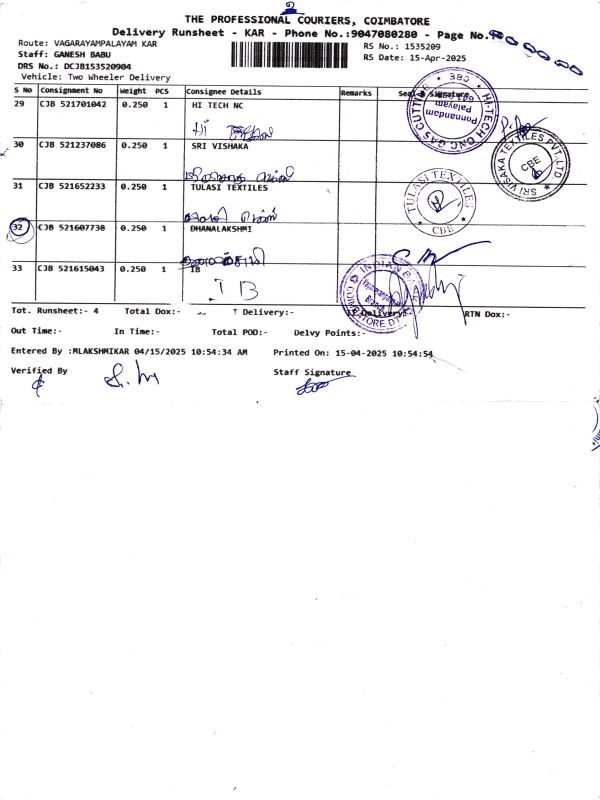 2
THE PROFESSIONAL COURIERS, COIMBATORE
Delivery Runsheet - KAR - Phone No.:9047080280 - Page No.
Route: VAGARAYAMPALAYAM KAR
RS No.: 1535209
Staff: GANESH BABU
RS Date: 15-Apr-2025
DRS No.: DCJB153520904
Vehicle: Two Wheeler Delivery
S No Consignment No Weight PCS Consignee Details Remarks Seal & Signature
29 CJB 521701042 0.250 1 HI TECH NC
30 CJB 521237086 0.250 1 SRI VISHAKA
31 CJB 521652233 0.250 1 TULASI TEXTILES
32 CJB 521607738 0.250 1 DHANALAKSHMI
33 CJB 521615043 0.250 1 IB
IB
HI-TECH CNC GAS CUTTING
Ponnandam
Palayam
CBE
SRI VISAKA TEXTILES PVT. LTD
CBE
TULASI TEXTILES
CBE
INDIAN BANK
COIMBATORE DT
Tot. Runsheet:- 4 Total Dox:- T Delivery:- Delivery RTN Dox:-
Out Time:- In Time:- Total POD:- Delvy Points:-
Entered By :MLAKSHMIKAR 04/15/2025 10:54:34 AM Printed On: 15-04-2025 10:54:54
Verified By Staff Signature